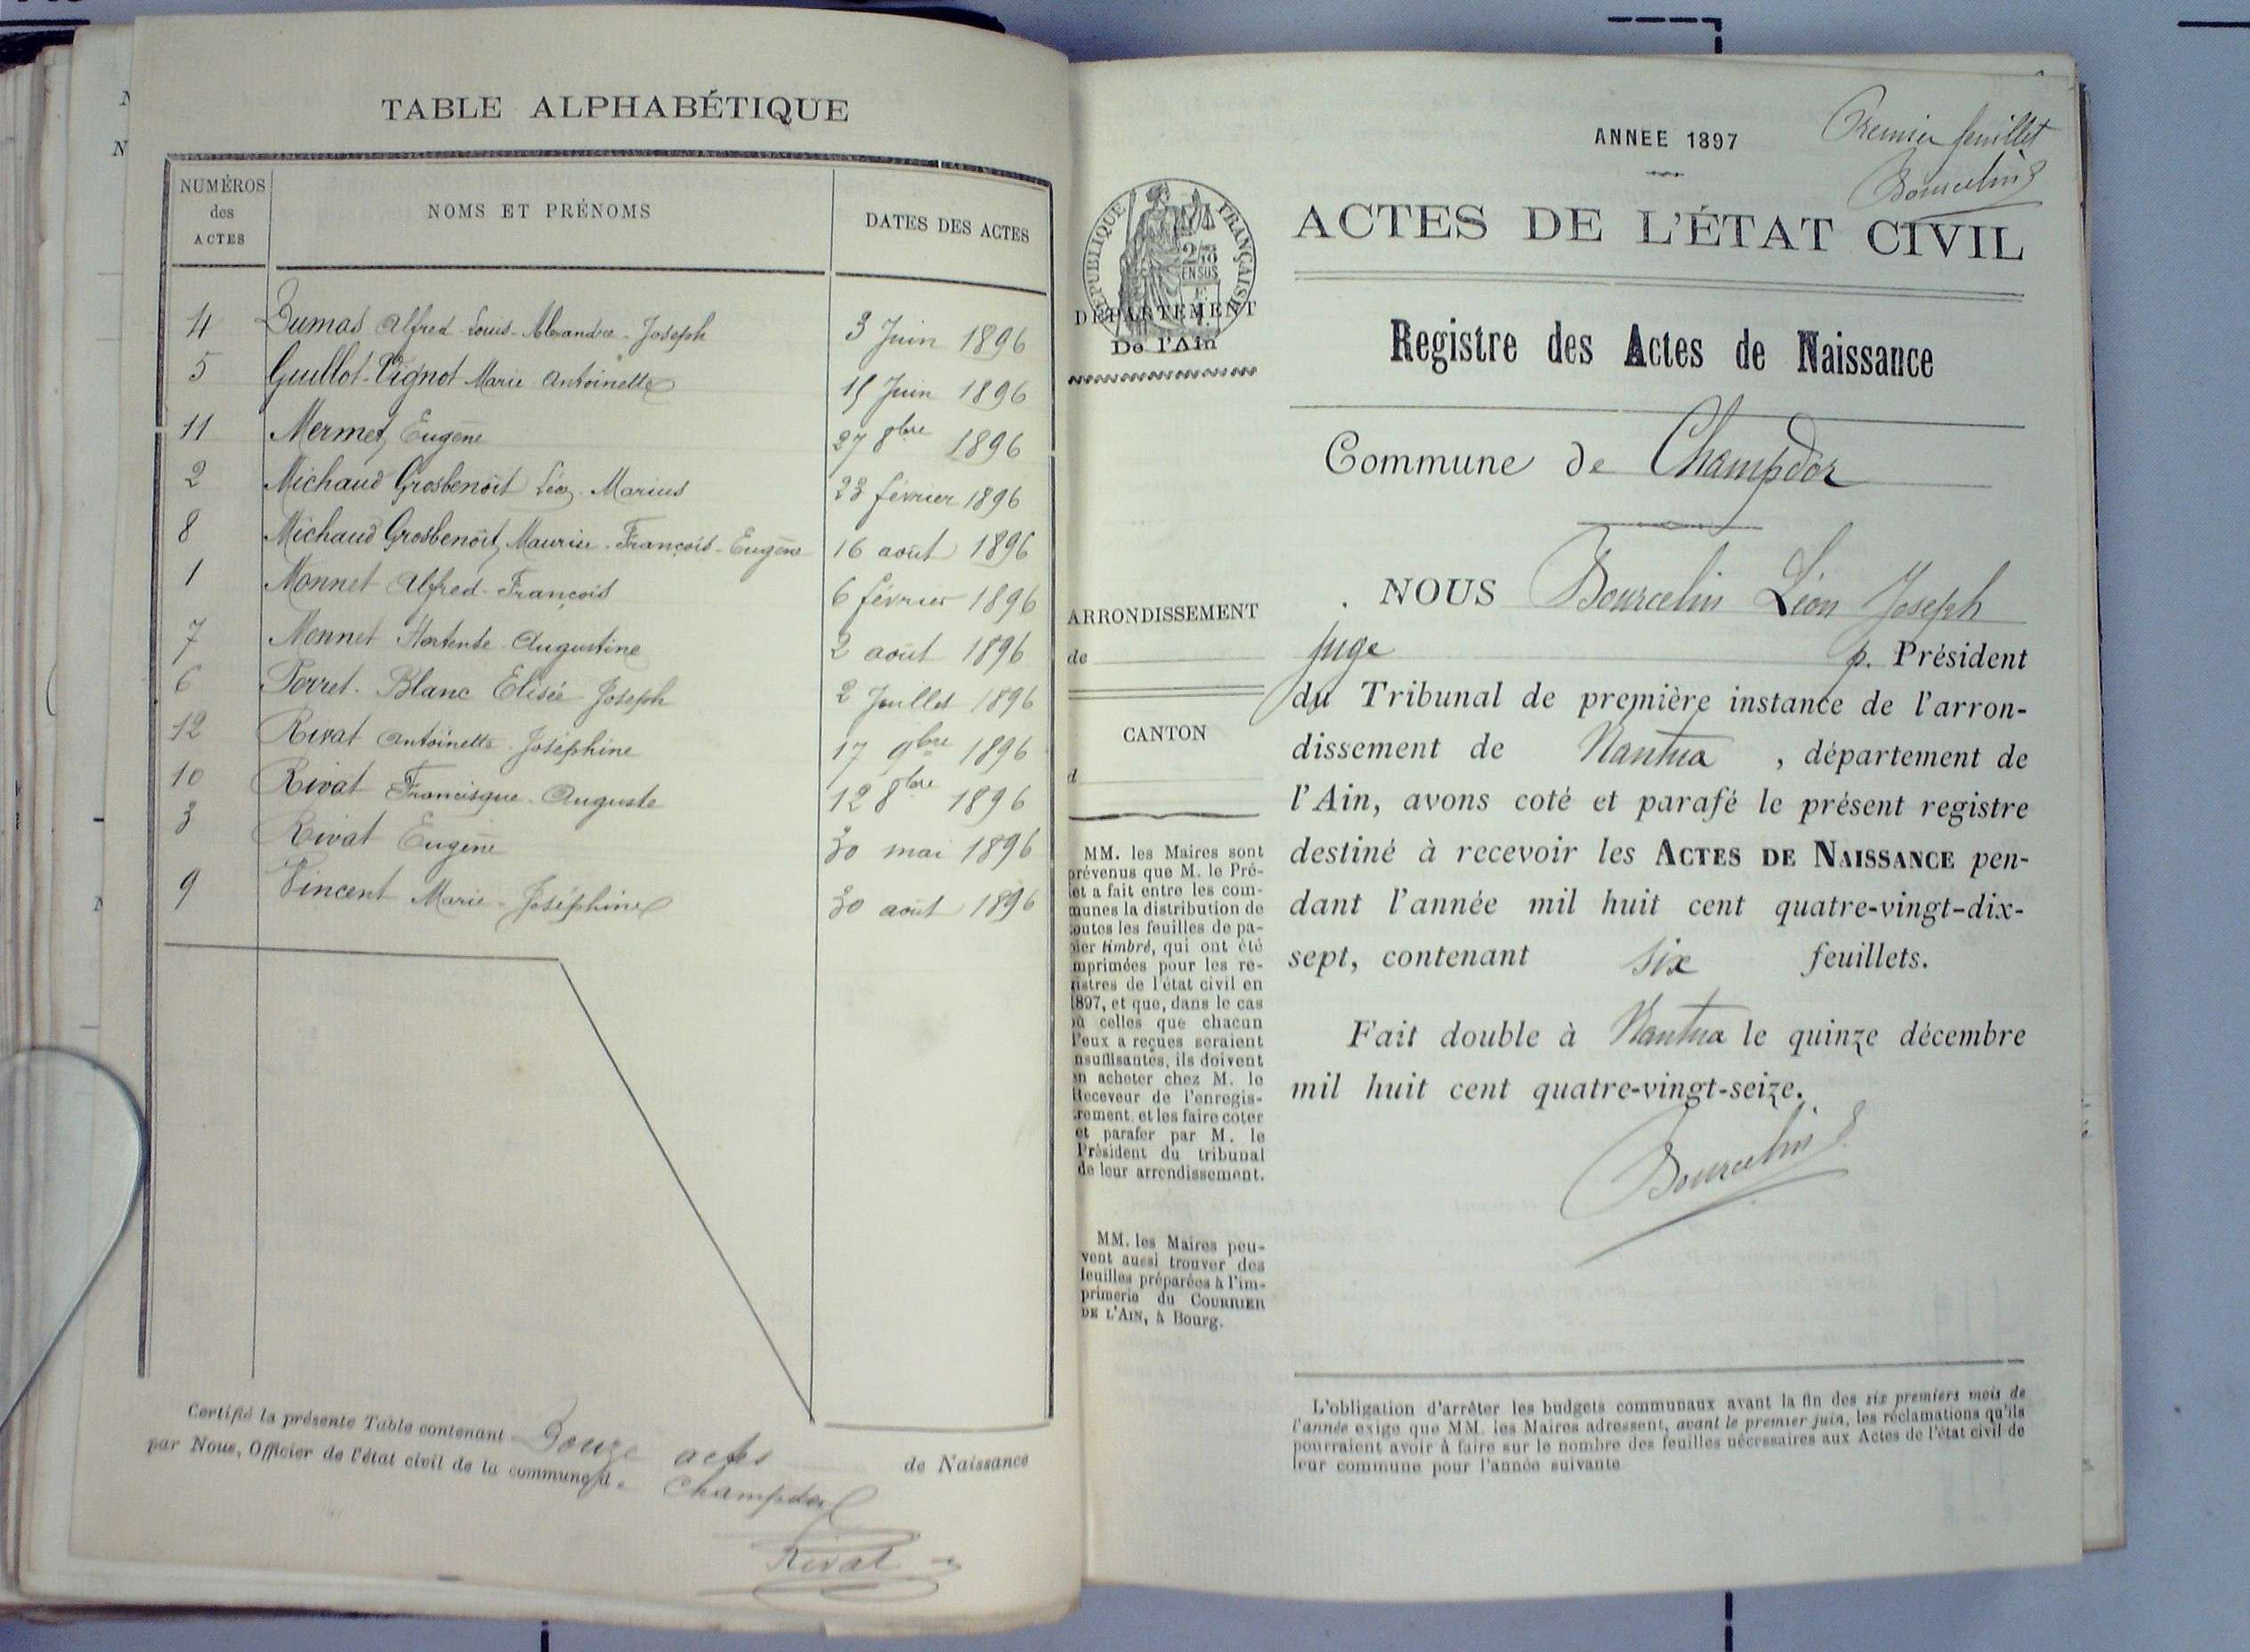 TABLE ALPHABÉTIQUE
NUMÉROS des ACTES NOMS ET PRÉNOMS DATES DES ACTES
4 Dumas Alfred Louis-Alexandre-Joseph 3 Juin 1896
5 Guillot-Vignot Marie Antoinette 15 Juin 1896
11 Mermet, Eugène 27 8bre 1896
2 Michaud Grosbenoit Léon-Marius 23 février 1896
8 Michaud Grosbenoit, Maurice-François-Eugène 16 août 1896
1 Monnet Alfred-François 6 février 1896
7 Monnet Hortense Augustine 2 août 1896
6 Perret-Blanc Elisée Joseph 2 Juillet 1896
12 Rivat Antoinette-Joséphine 17 9bre 1896
10 Rivat Francisque-Auguste 12 8bre 1896
3 Rivat Eugène 30 mai 1896
9 Vincent Marie-Joséphine 30 août 1896
Certifié la présente Table contenant Douze actes de Naissance
par Nous, Officier de l'état civil de la commune d. Champdor
Rivat
Premier feuillet
Bourcelin
ANNEE 1897
ACTES DE L'ÉTAT CIVIL
RÉPUBLIQUE FRANÇAISE
DÉPARTEMENT
De l'Ain
Registre des Actes de Naissance
Commune de Champdor
NOUS Bourcelin Léon Joseph
juge p. Président
du Tribunal de première instance de l'arron-
dissement de Nantua, département de
l'Ain, avons coté et parafé le présent registre
destiné à recevoir les ACTES DE NAISSANCE pen-
dant l'année mil huit cent quatre-vingt-dix-
sept, contenant six feuillets.
Fait double à Nantua le quinze décembre
mil huit cent quatre-vingt-seize.
Bourcelin
ARRONDISSEMENT
de
CANTON
d
MM. les Maires sont
prévenus que M. le Pré-
fet a fait entre les com-
munes la distribution de
toutes les feuilles de pa-
pier timbré, qui ont été
imprimées pour les re-
gistres de l'état civil en
1897, et que, dans le cas
où celles que chacun
d'eux a reçues seraient
insuffisantes, ils doivent
en acheter chez M. le
Receveur de l'enregis-
trement, et les faire coter
et parafer par M. le
Président du tribunal
de leur arrondissement.
MM. les Maires peu-
vent aussi trouver des
feuilles préparées à l'im-
primerie du COURRIER
DE L'AIN, à Bourg.
L'obligation d'arrêter les budgets communaux avant la fin des six premiers mois de
l'année exige que MM. les Maires adressent, avant le premier juin, les réclamations qu'ils
pourraient avoir à faire sur le nombre des feuilles nécessaires aux Actes de l'état civil de
leur commune pour l'année suivante